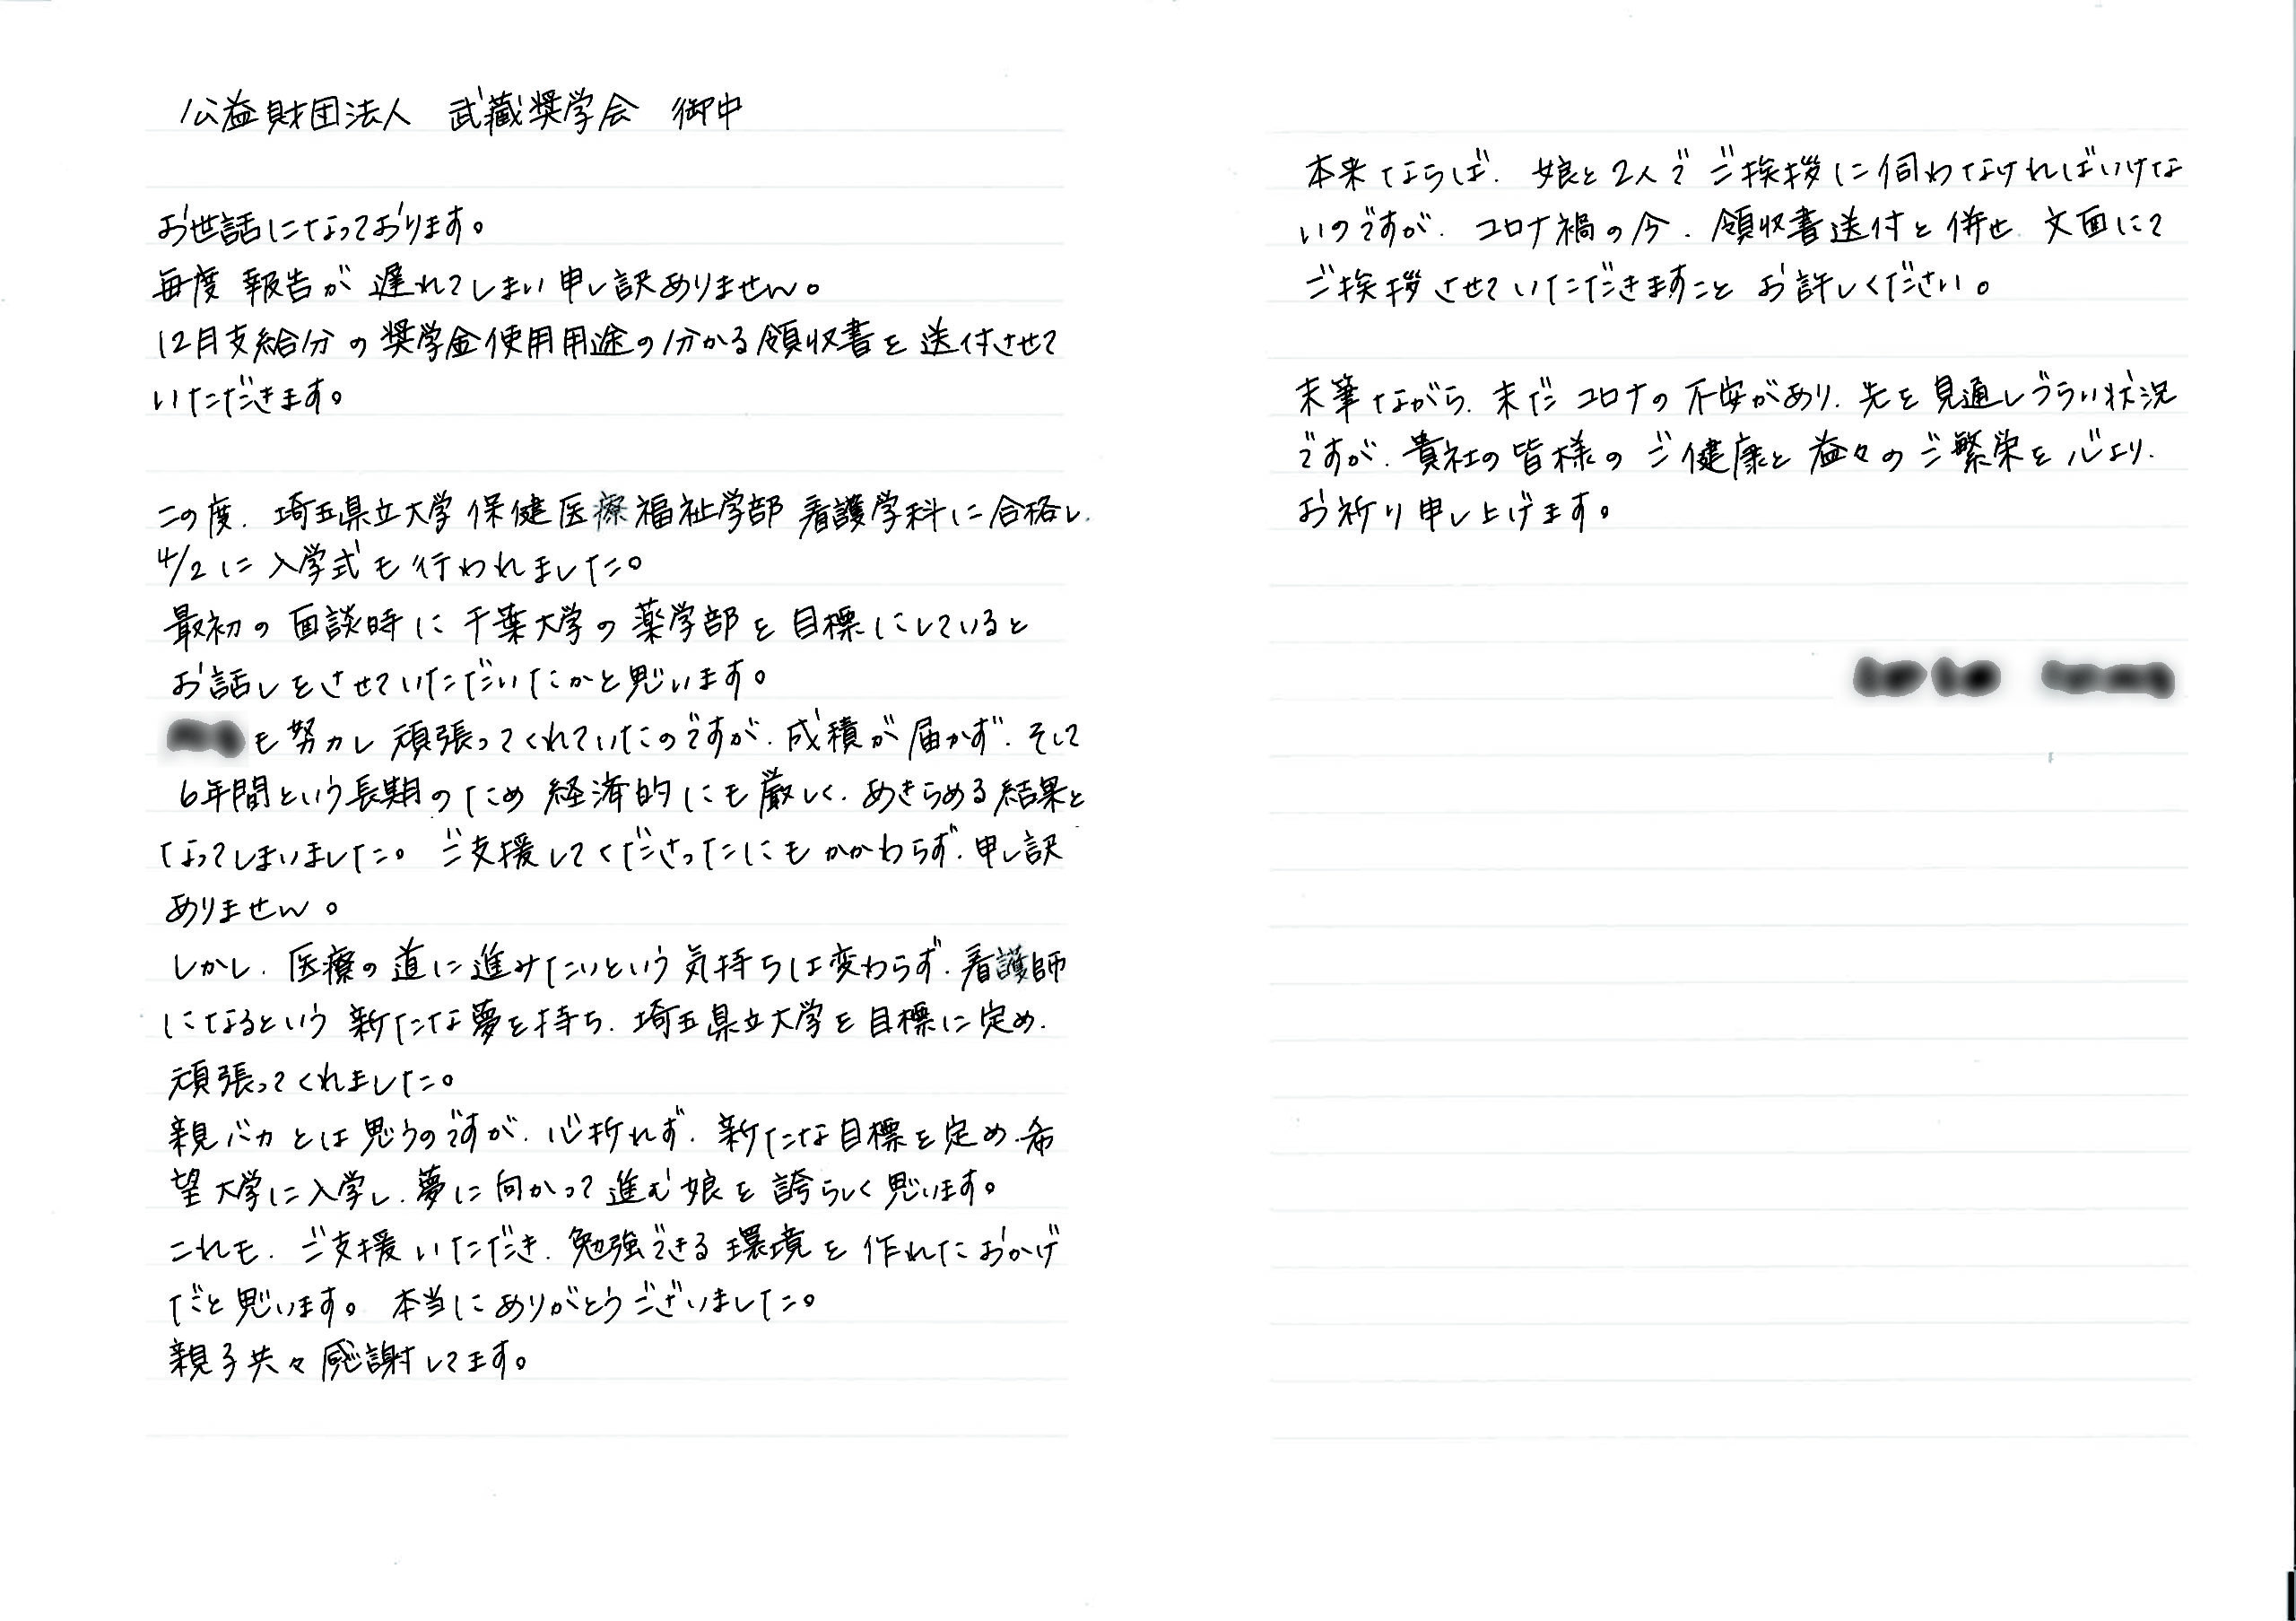 公益財団法人 武蔵奨学会 御中
お世話になっております。
毎度 報告が 遅れてしまい 申し訳ありません。
12月支給分の 奨学金使用用途の分かる領収書を 送付させて
いただきます。
この度、埼玉県立大学 保健医療福祉学部 看護学科に合格し、
4/2に 入学式も行われました。
最初の 面談時に 千葉大学の 薬学部を 目標にしていると
お話しをさせていただいたかと思います。
も努力し 頑張ってくれていたのですが、成積が届かず、そして
6年間という長期のため 経済的にも厳しく、あきらめる結果と
なってしまいました。ご支援してくださったにもかかわらず、申し訳
ありません。
しかし、医療の道に進みたいという気持ちは変わらず、看護師
になるという 新たな夢を持ち、埼玉県立大学を目標に定め、
頑張ってくれました。
親バカとは思うのですが、心折れず、新たな目標を定め、希
望大学に入学し、夢に向かって進む娘を誇らしく思います。
これも、ご支援いただき、勉強できる環境を作れたおかげ
だと思います。本当にありがとうございました。
親子共々感謝してます。
本来ならば、娘と2人でご挨拶に伺わなければいけな
いのですが、コロナ禍の今、領収書送付と併せ、文面にて
ご挨拶させていただきますこと お許しください。
末筆ながら、未だコロナの不安があり、先を見通しづらい状況
ですが、貴社の皆様のご健康と益々のご繁栄を心より、
お祈り申し上げます。